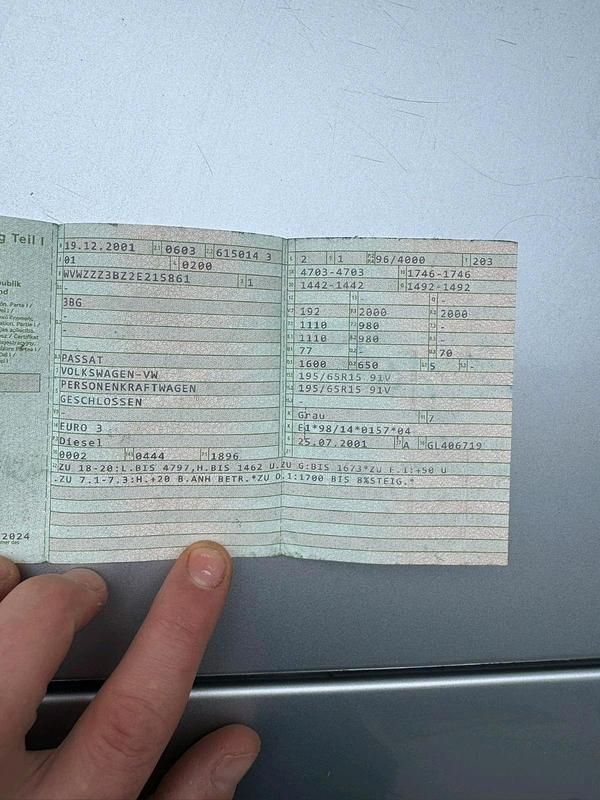 g Teil I
19.12.2001 0603 615014 3
01 0200
WVWZZZ3BZ2E215861 1
3BG
-
PASSAT
VOLKSWAGEN-VW
PERSONENKRAFTWAGEN
GESCHLOSSEN
-
EURO 3
Diesel
0002 0444 1896
2 1 96/4000 203
4703-4703 1746-1746
1442-1442 1492-1492
- -
192 2000 2000
1110 980 -
1110 980 -
77 - 70
1600 650 5 -
195/65R15 91V
195/65R15 91V
-
Grau 7
E1*98/14*0157*04
25.07.2001 A GL406719
ZU 18-20:L.BIS 4797,H.BIS 1462 U.ZU G:BIS 1673*ZU F.1:+50 U
.ZU 7.1-7.3:H.+20 B.ANH BETR.*ZU O.1:1700 BIS 8%STEIG.*
2024